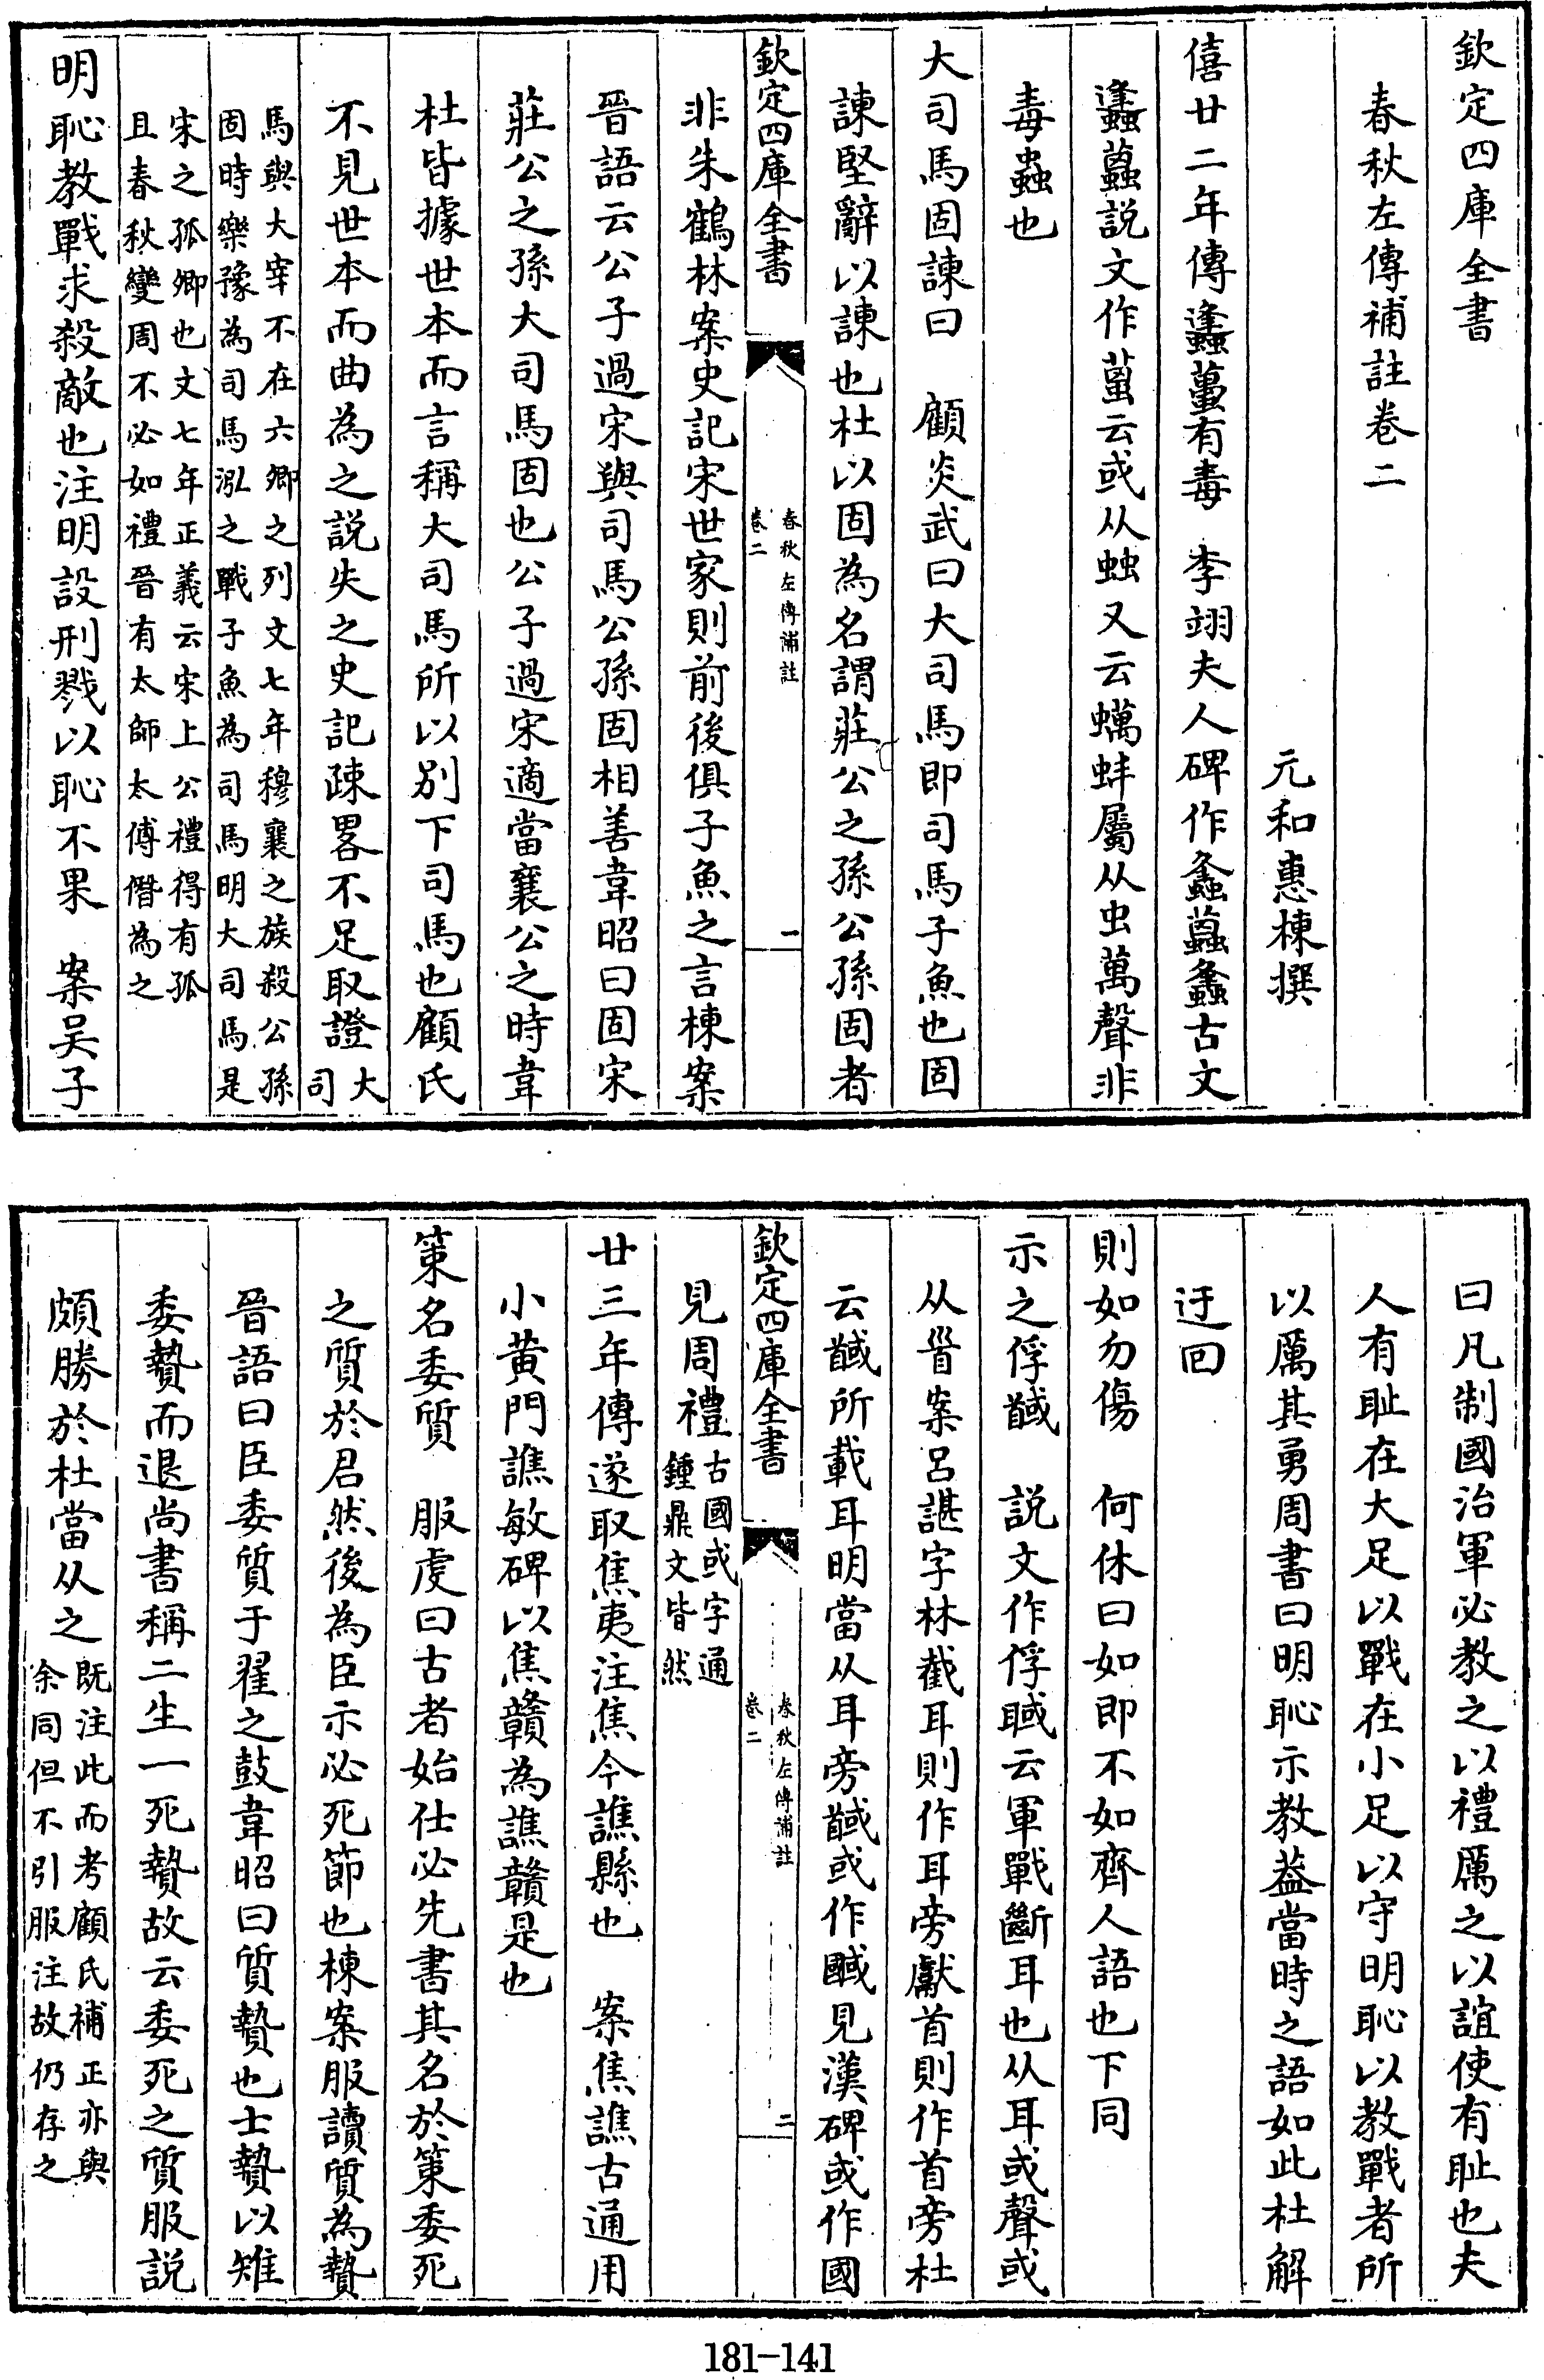 欽定四庫全書
春秋左傳補註卷二
元和惠棟撰
僖廿二年傳蠭蠆有毒　李翊夫人碑作螽蠚螽古文
蠭蠚説文作蠆云或从䖵又云蠣蚌屬从虫萬聲非
毒蟲也
大司馬固諫曰　顧炎武曰大司馬即司馬子魚也固
諫堅辭以諫也杜以固為名謂莊公之孫公孫固者
欽定四庫全書
春秋左傳補註
卷二
一
非朱鶴林案史記宋世家則前後俱子魚之言棟案
晉語云公子過宋與司馬公孫固相善韋昭曰固宋
莊公之孫大司馬固也公子過宋適當襄公之時韋
杜皆據世本而言稱大司馬所以别下司馬也顧氏
不見世本而曲為之説失之史記疎畧不足取證大
司
馬與大宰不在六卿之列文七年穆襄之族殺公孫
固時樂豫為司馬泓之戰子魚為司馬明大司馬是
宋之孤卿也文七年正義云宋上公禮得有孤
且春秋變周不必如禮晉有太師太傅僭為之
明恥教戰求殺敵也注明設刑戮以恥不果　案吴子
曰凡制國治軍必教之以禮厲之以誼使有耻也夫
人有耻在大足以戰在小足以守明恥以教戰者所
以厲其勇周書曰明恥示教葢當時之語如此杜解
迂回
則如勿傷　何休曰如即不如齊人語也下同
示之俘馘　説文作俘聝云軍戰斷耳也从耳或聲或
从𩠐案呂諶字林截耳則作耳旁獻首則作首旁杜
云馘所載耳明當从耳旁馘或作䤋見漢碑或作國
欽定四庫全書
春秋左傳補註
卷二
二
見周禮古國或字通
鍾鼎文皆然
廿三年傳遂取焦夷注焦今譙縣也　案焦譙古通用
小黄門譙敏碑以焦贛為譙贛是也
策名委質　服虔曰古者始仕必先書其名於策委死
之質於君然後為臣示必死節也棟案服讀質為贄
晉語曰臣委質于翟之鼓韋昭曰質贄也士贄以雉
委贄而退尚書稱二生一死贄故云委死之質服説
頗勝於杜當从之既注此而考顧氏補正亦與
余同但不引服注故仍存之
181-141